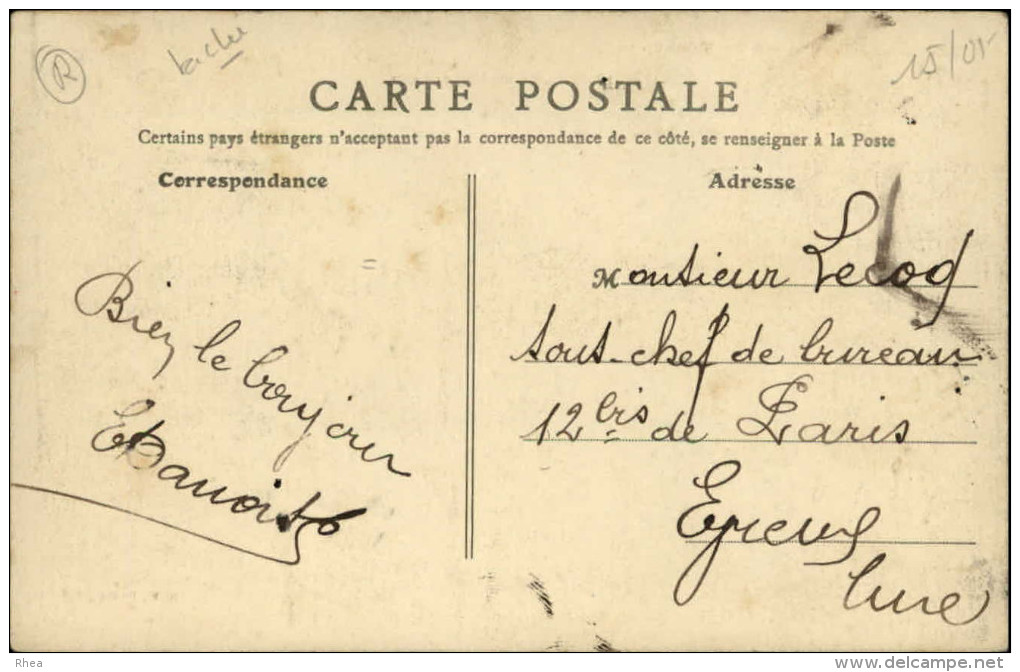 R
15/01
CARTE POSTALE
Certains pays étrangers n'acceptant pas la correspondance de ce côté, se renseigner à la Poste
Correspondance
Adresse
Bien le bonjour
Monsieur Lecoq
sous-chef de bureau
12 bis de Paris
Evreux
Eure
Rhea
www.delcampe.net